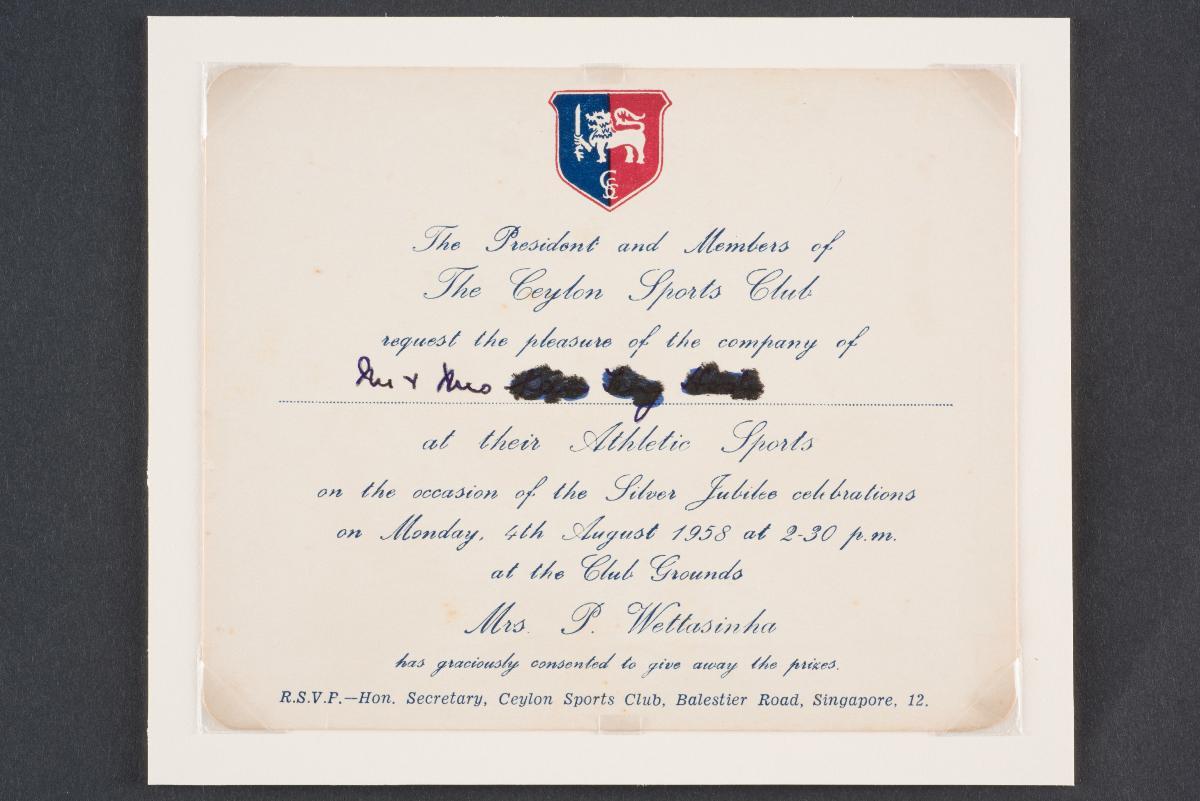 CSC
The President and Members of
The Ceylon Sports Club
request the pleasure of the company of
Mr & Mrs
at their Athletic Sports
on the occasion of the Silver Jubilee celebrations
on Monday, 4th August 1958 at 2-30 p.m.
at the Club Grounds
Mrs. P. Wettasinha
has graciously consented to give away the prizes.
R.S.V.P.—Hon. Secretary, Ceylon Sports Club, Balestier Road, Singapore, 12.